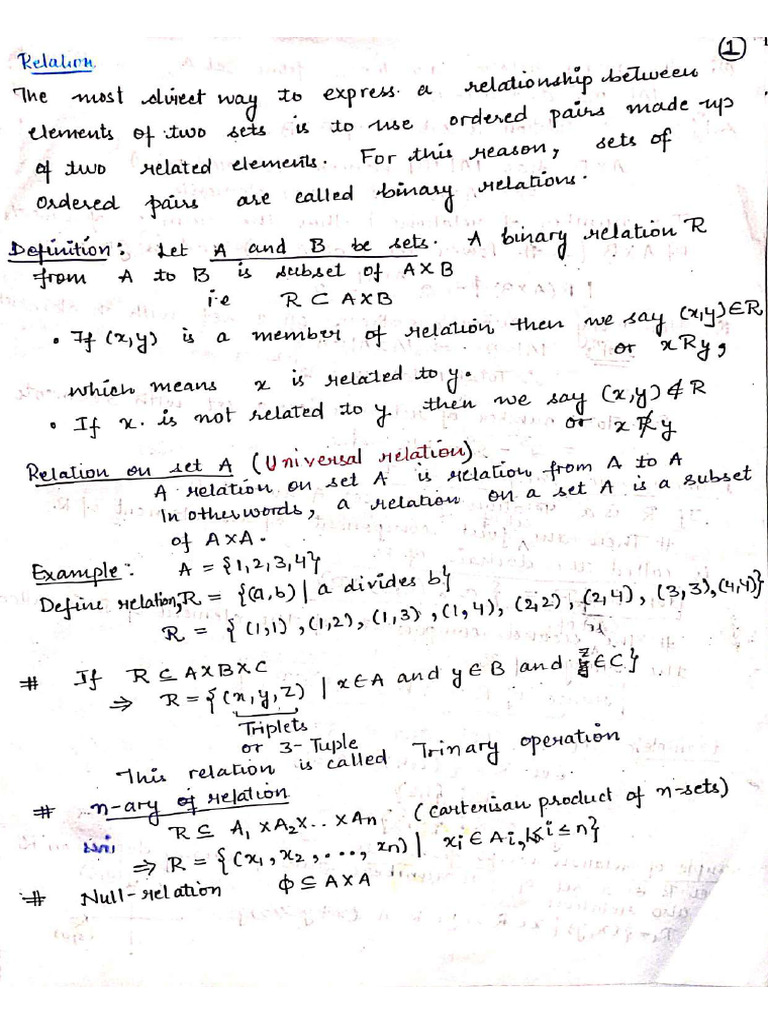 1
Relation
The most direct way to express a relationship between
elements of two sets is to use ordered pairs made up
of two related elements. For this reason, sets of
ordered pairs are called binary relations.
Definition: Let A and B be sets. A binary relation R
from A to B is subset of A×B
i.e R ⊂ A×B
• If (x,y) is a member of relation then we say (x,y)∈R
or xRy,
which means x is related to y.
• If x. is not related to y then we say (x,y) ∉ R
or x R̸ y
Relation on set A (Universal relation)
A relation on set A is relation from A to A
In otherwords, a relation on a set A is a subset
of A×A.
Example: A = {1,2,3,4}
Define relation, R = {(a,b) | a divides b}
R = {(1,1),(1,2),(1,3),(1,4),(2,2),(2,4),(3,3),(4,4)}
# If R ⊆ A×B×C
⇒ R = {(x,y,z) | x∈A and y∈B and z∈C}
Triplets
or 3-Tuple
This relation is called Trinary operation
# n-ary of relation
R ⊆ A₁×A₂×..×Aₙ (carterisan product of n-sets)
⇒ R = {(x₁,x₂,...,xₙ) | xᵢ∈Aᵢ, 1≤i≤n}
# Null-relation ϕ ⊆ A×A